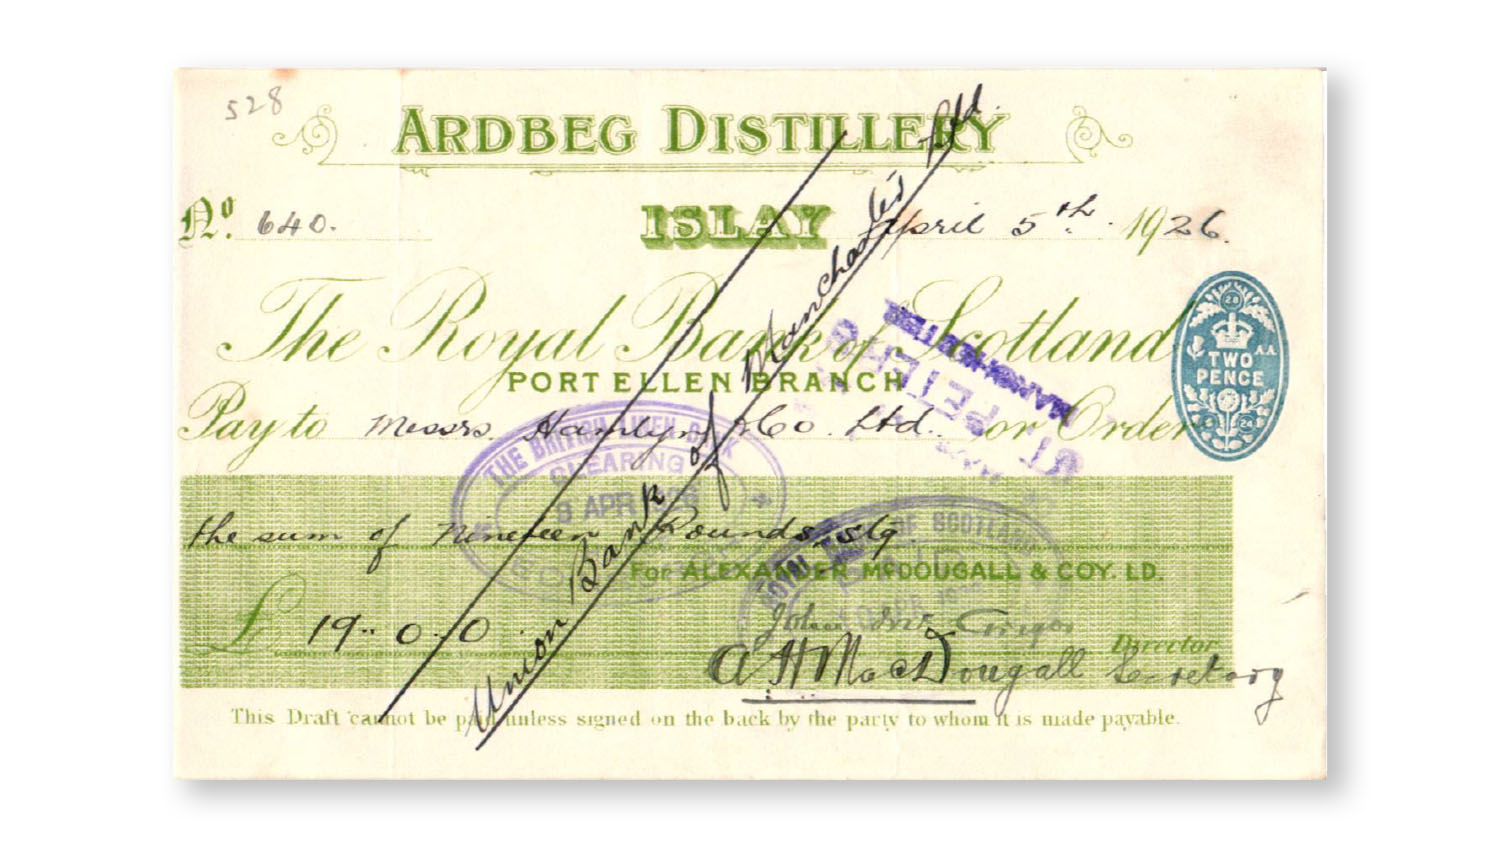 528
ARDBEG DISTILLERY
No. 640.
ISLAY April 5th 1926.
The Royal Bank of Scotland
PORT ELLEN BRANCH
28
TWO PENCE
A.A.
24
Pay to Messrs. Hamlyn & Co. Ltd. or Order
MANCHESTER
ST PETER'S
THE BRITISH LINEN BANK
CLEARING
9 APR 1926
the sum of Nineteen Pounds, stg.
ROYAL BANK OF SCOTLAND
For ALEXANDER McDOUGALL & COY. LD.
£ 19 " 0 " 0
John
Director
A H MacDougall Secretary
Union Bank of Manchester Ltd.
This Draft cannot be paid unless signed on the back by the party to whom it is made payable.